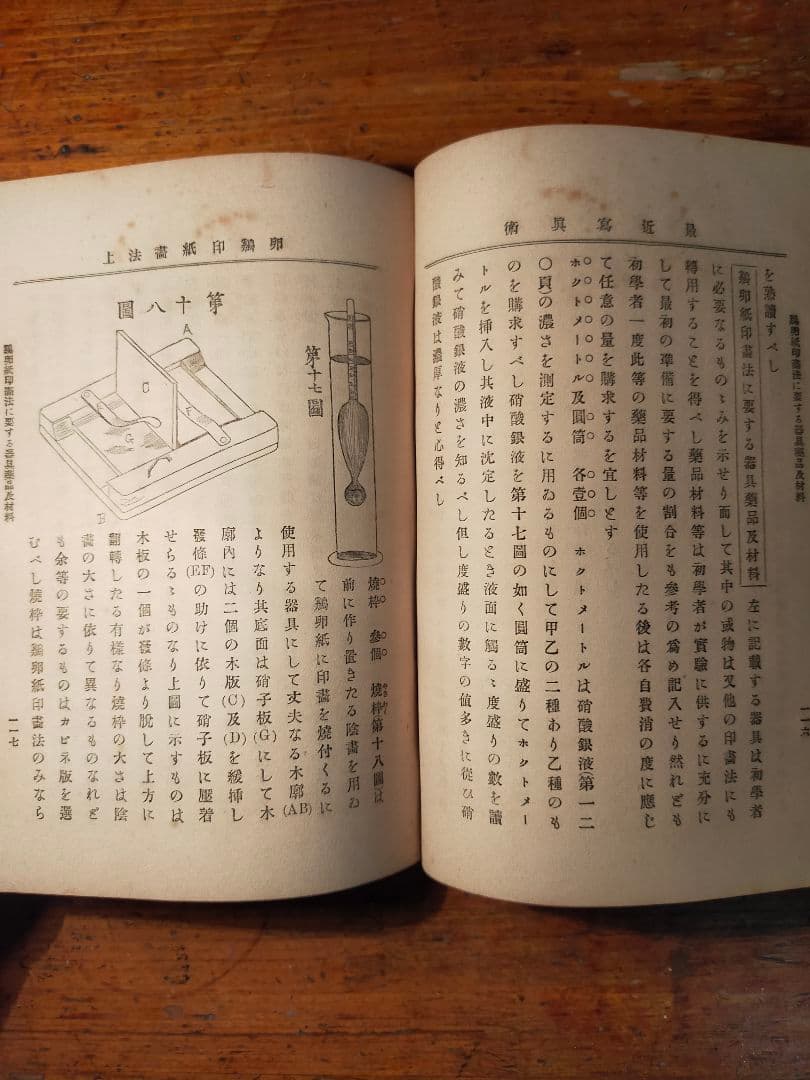 最近寫眞術
鷄卵紙印畵法に要する器具藥品及材料
一一六
を熟讀すべし
鷄卵紙印畵法に要する器具藥品及材料 左に記載する器具は初學者
に必要なるものゝみを示せり而して其中の或物は又他の印畵法にも
轉用することを得べし藥品材料等は初學者が實驗に供するに充分に
して最初の準備に要する量の割合をも參考の爲め記入せり然れども
初學者一度此等の藥品材料等を使用したる後は各自費消の度に應じ
て任意の量を購求するを宜しとす
ホクトメートル及圓筒 各壹個 ホクトメートルは硝酸銀液(第一二
〇頁)の濃さを測定するに用ゐるものにして甲乙の二種あり乙種のも
のを購求すべし硝酸銀液を第十七圖の如く圓筒に盛りてホクトメー
トルを挿入し其液中に沈定したるとき液面に觸るゝ度盛りの數を讀
みて硝酸銀液の濃さを知るべし但し度盛りの數字の値多きに從ひ硝
酸銀液は濃厚なりと心得べし
卵鷄印紙畵法上
第十七圖
第十八圖
A
B
C
E
G
燒枠 參個 燒枠第十八圖は
前に作り置きたる陰畵を用ゐ
て鷄卵紙に印畵を燒付くるに
使用する器具にして丈夫なる木廓(AB)
よりなり其底面は硝子板(G)にして木
廓內には二個の木版(C及D)を緩挿し
發條(EF)の助けに依りて硝子板に壓着
せらるゝものなり上圖に示すものは
木板の一個が發條より脫して上方に
翻轉したる有樣なり燒枠の大さは陰
畵の大さに依りて異なるものなれど
も余等の要するものはカビネ版を選
むべし燒枠は鷄卵紙印畵法のみなら
鷄卵紙印畵法に要する器具藥品及材料
一一七